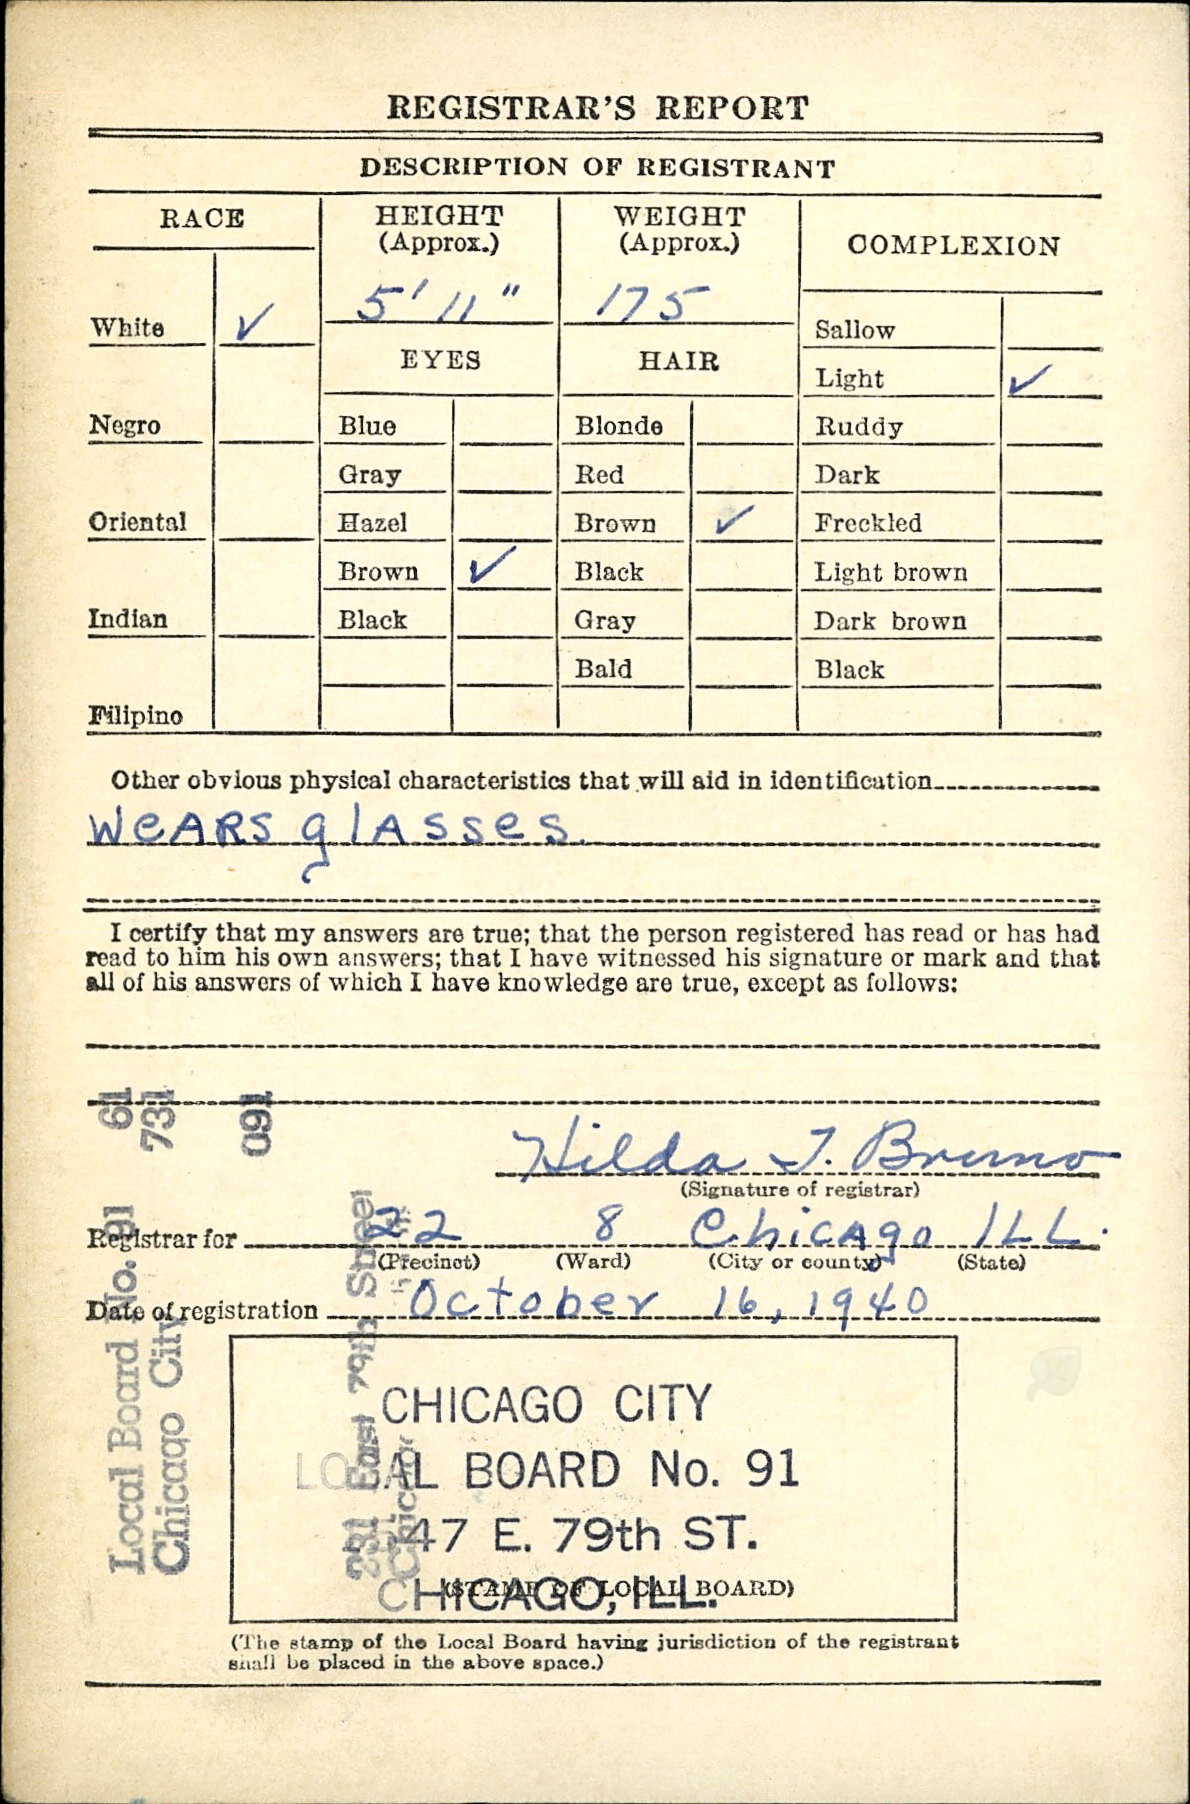 REGISTRAR'S REPORT
DESCRIPTION OF REGISTRANT
RACE
HEIGHT
(Approx.)
WEIGHT
(Approx.)
COMPLEXION
5' 11"
175
White ✓
Sallow
EYES
HAIR
Light ✓
Negro
Blue
Blonde
Ruddy
Gray
Red
Dark
Oriental
Hazel
Brown ✓
Freckled
Brown ✓
Black
Light brown
Indian
Black
Gray
Dark brown
Bald
Black
Filipino
Other obvious physical characteristics that will aid in identification
WeARS glAsses.
I certify that my answers are true; that the person registered has read or has had
read to him his own answers; that I have witnessed his signature or mark and that
all of his answers of which I have knowledge are true, except as follows:
61
731
091
Hilda J. Bruno
(Signature of registrar)
Registrar for 22 8 Chicago ILL.
(Precinct) (Ward) (City or county) (State)
Date of registration October 16, 1940
Local Board No. 91
Chicago City
231 East 79th Street
Chicago
CHICAGO CITY
LOCAL BOARD No. 91
47 E. 79th ST.
CHICAGO, ILL.
(STAMP OF LOCAL BOARD)
(The stamp of the Local Board having jurisdiction of the registrant
shall be placed in the above space.)